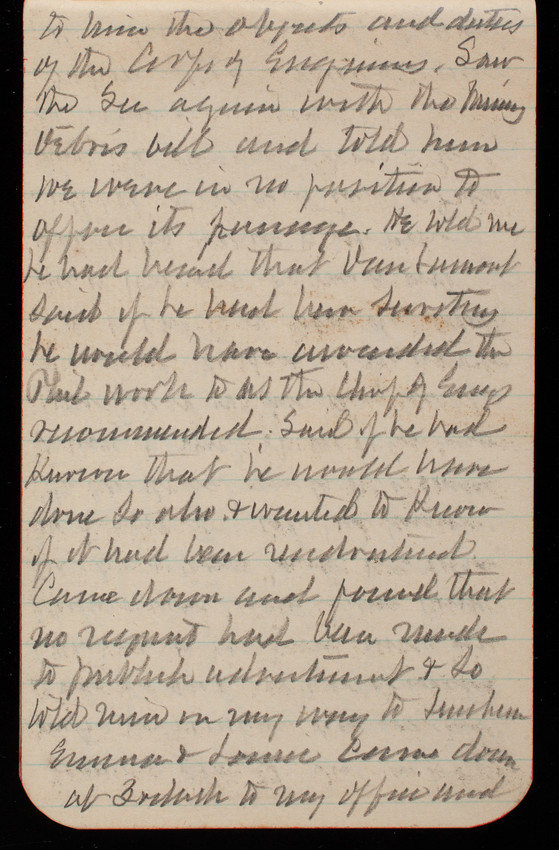 to him the objects and duties
of the Corps of Engineers. Saw
the Sec again with the Mining
Debris bill and told him
we were in no position to
oppose its passage. He told me
he had heard that Van
said if he had been Secretary
he would have awarded the
work to as the Chf of Engs
recommended. Said if he had
known that he would have
done so also & wanted to know
if it had been readvertised.
Came down and found that
no request had been made
to publish advertisment & so
told him on my way to luncheon
Emma & Louise came down
at 3 oclock to my office and